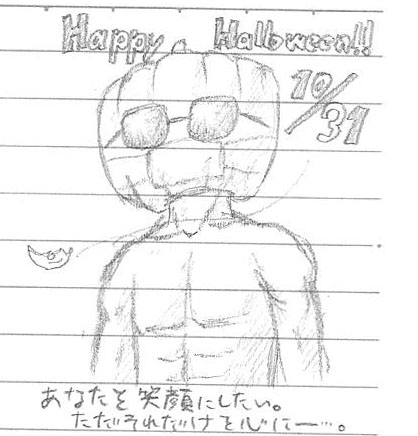 Happy Halloween!!
10/31
あなたを笑顔にしたい。
ただそれだけを心に一…。